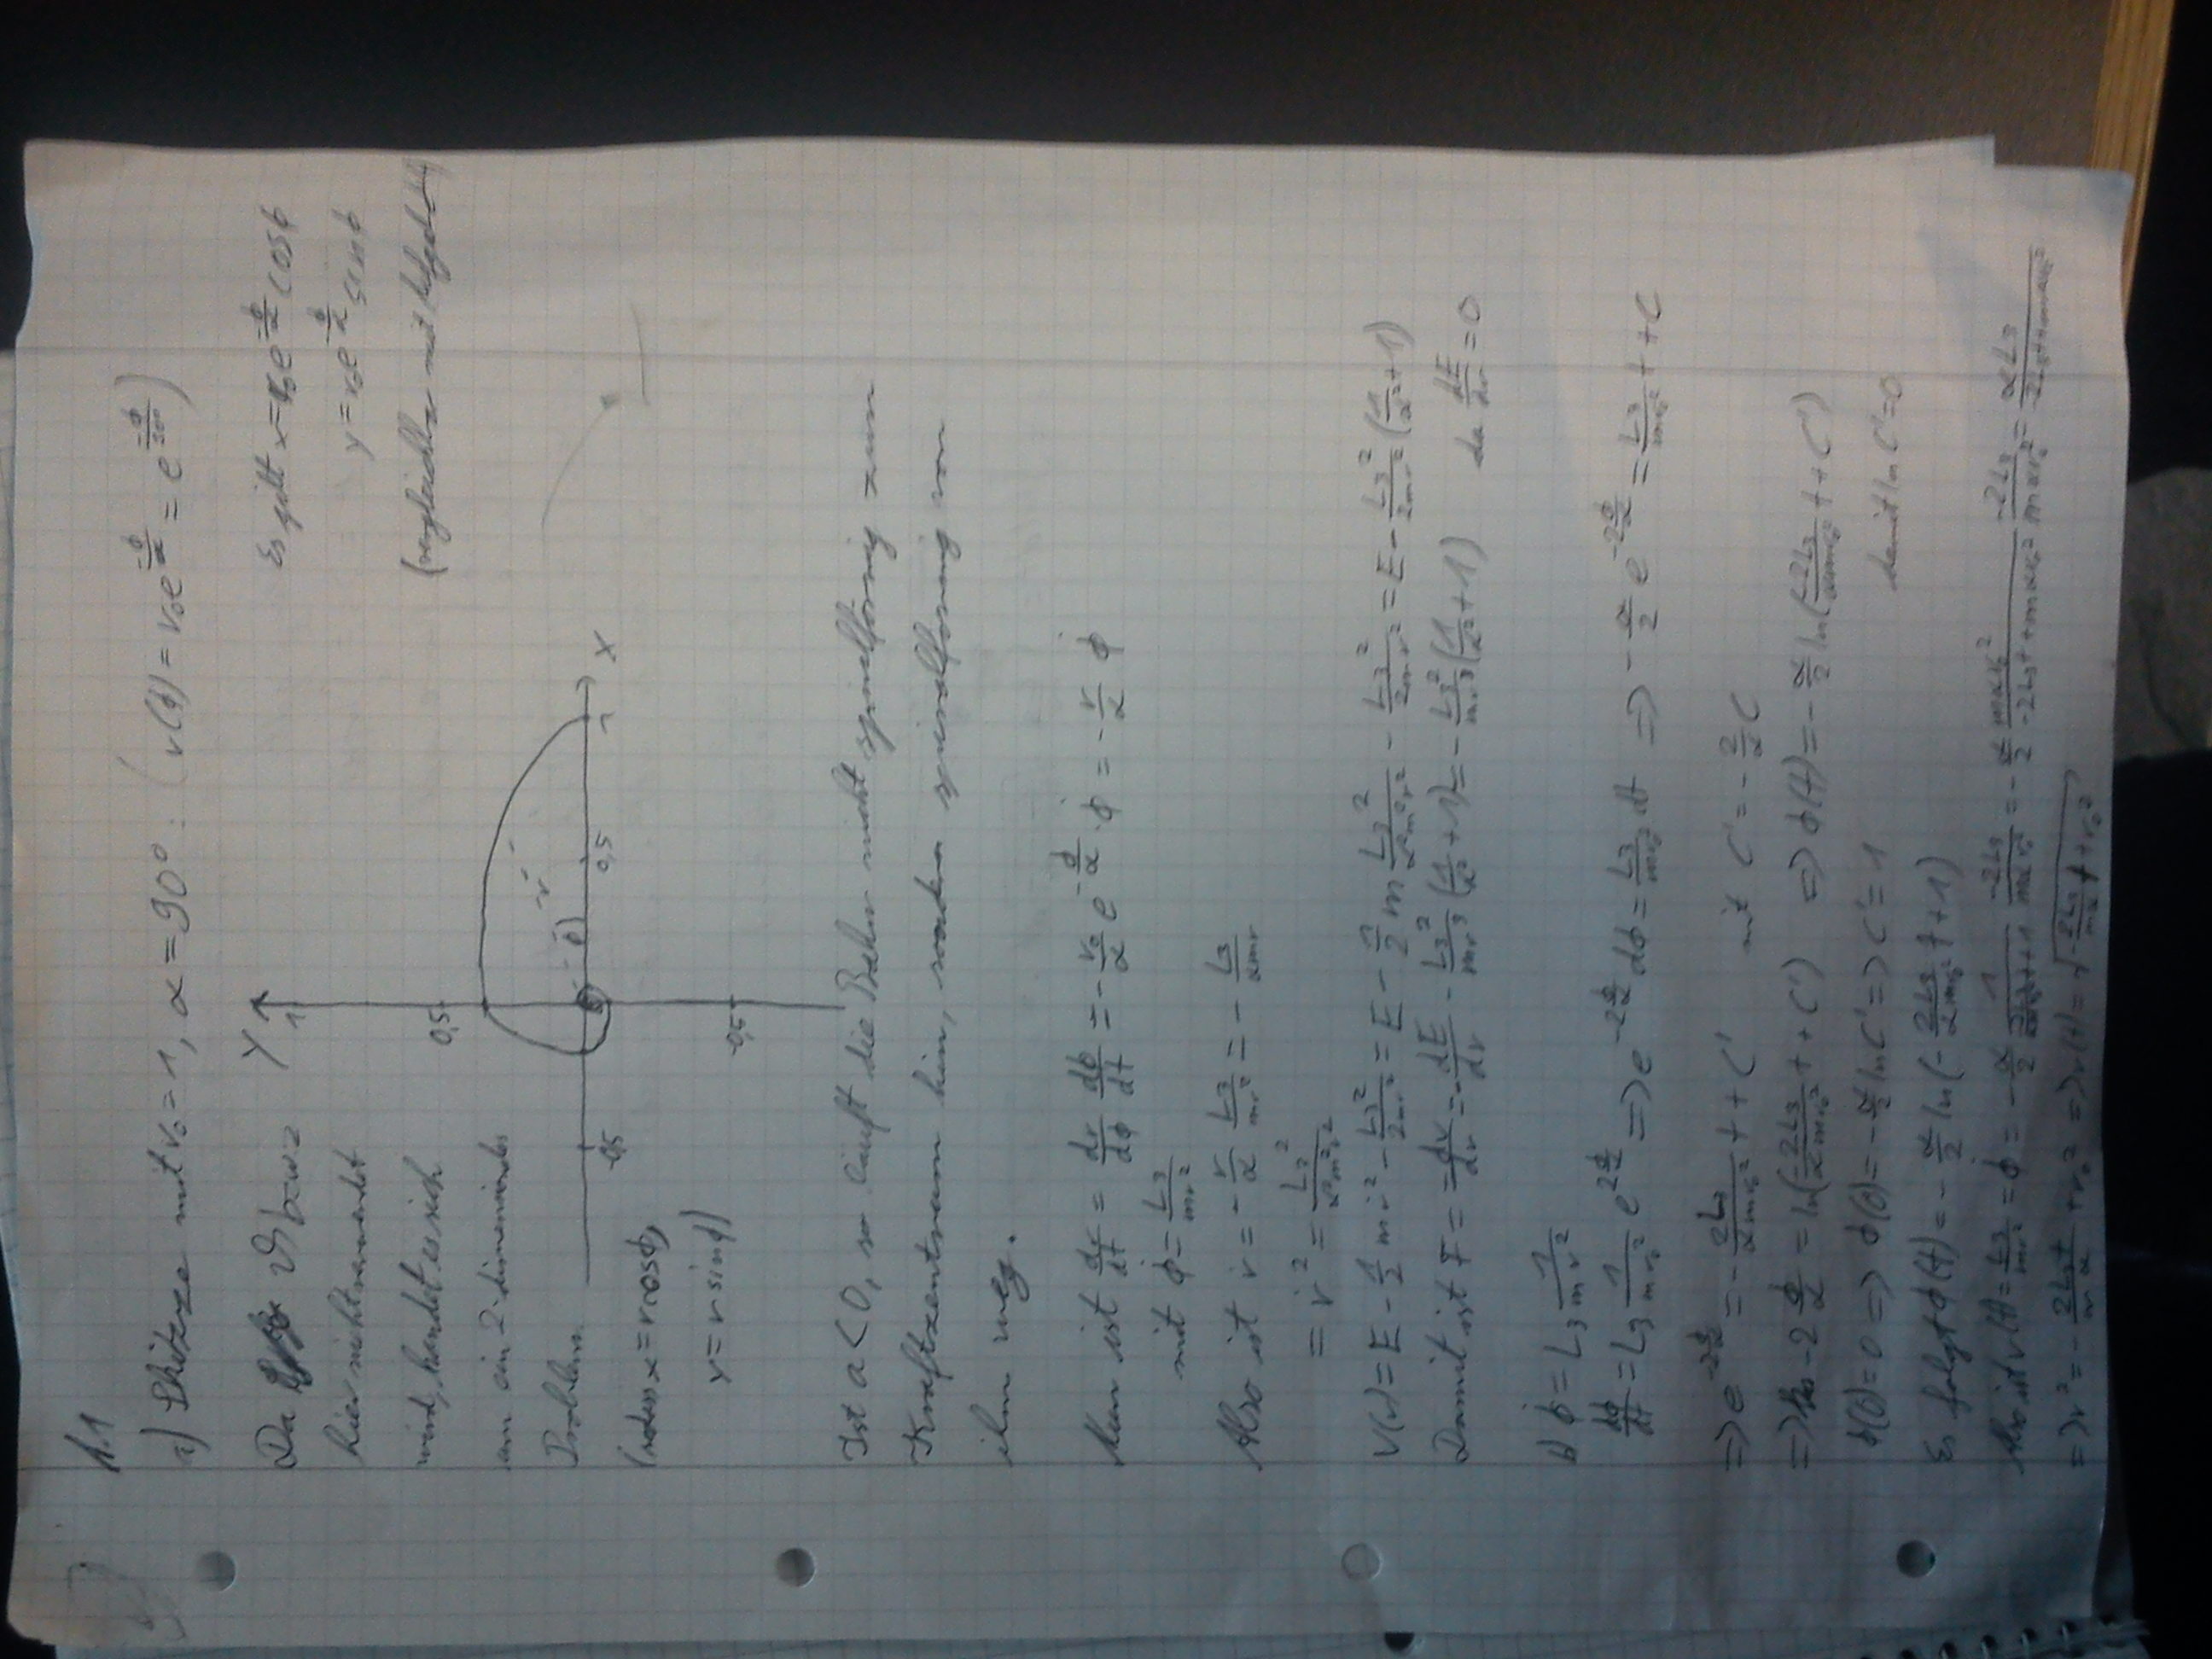 A.1
a) Skizze mit r₀ = 1, α = 90°: (r(ϕ) = r₀e^(-ϕ/α) = e^(-ϕ/90°))
Da ϑ bzw z
hier nicht verwendet
wird, handelt es sich
um ein 2-dimensionales
Problem.
(sodass x = r cosϕ,
y = r sinϕ)
Y
1
0,5
-0,5
-0,5
0,5
1
X
r
ϕ
Es gilt x = r₀e^(-ϕ/α) cosϕ
y = r₀e^(-ϕ/α) sinϕ
Ist a < 0, so läuft die Bahn nicht spiralförmig zum
Kraftzentrum hin, sondern spiralförmig von
ihm weg.
Nun ist dr/dt = dr/dϕ dϕ/dt = -r₀/α e^(-ϕ/α) · ϕ̇ = -r/α ϕ̇
mit ϕ̇ = L₃/(mr²)
Also ist ṙ = -r/α L₃/(mr²) = -L₃/(αmr)
=> ṙ² = L₃²/(α²m²r²)
V(r) = E - 1/2 mṙ² - L₃²/(2mr²) = E - 1/2 m L₃²/(α²m²r²) - L₃²/(2mr²) = E - L₃²/(2mr²) (1/α² + 1)
Damit ist F = -dV/dr = -dE/dr - L₃²/(mr³) (1/α² + 1) = -L₃²/(mr³) (1/α² + 1) da dE/dr = 0
b) ϕ̇ = L₃ 1/(mr²)
dϕ/dt = L₃ 1/(mr₀²) e^(2ϕ/α) => e^(-2ϕ/α) dϕ = L₃/(mr₀²) dt => -α/2 e^(-2ϕ/α) = L₃/(mr₀²) t + C
=> e^(-2ϕ/α) = -2L₃/(αmr₀²) t + C' mit C' = -2/α C
=> -2 ϕ/α = ln(-2L₃/(αmr₀²) t + C') => ϕ(t) = -α/2 ln(-2L₃/(αmr₀²) t + C')
ϕ(0) = 0 => ϕ(0) = -α/2 ln C' => C' = 1 damit ln C' = 0
Es folgt ϕ(t) = -α/2 ln(-2L₃/(αmr₀²) t + 1)
Also ist r(t) = L₃/(mr²) = ϕ̇ = -α/2 1/(-2L₃/(αmr₀²) t + 1) · -2L₃/(mαr₀²) = -α/2 mαr₀²/(-2L₃t + mαr₀²) -2L₃/(mαr₀²) = αL₃/(-2L₃t + mαr₀²)
=> r² = -2L₃t/(mα) + r₀² => r(t) = √(-2L₃/(mα) t + r₀²)